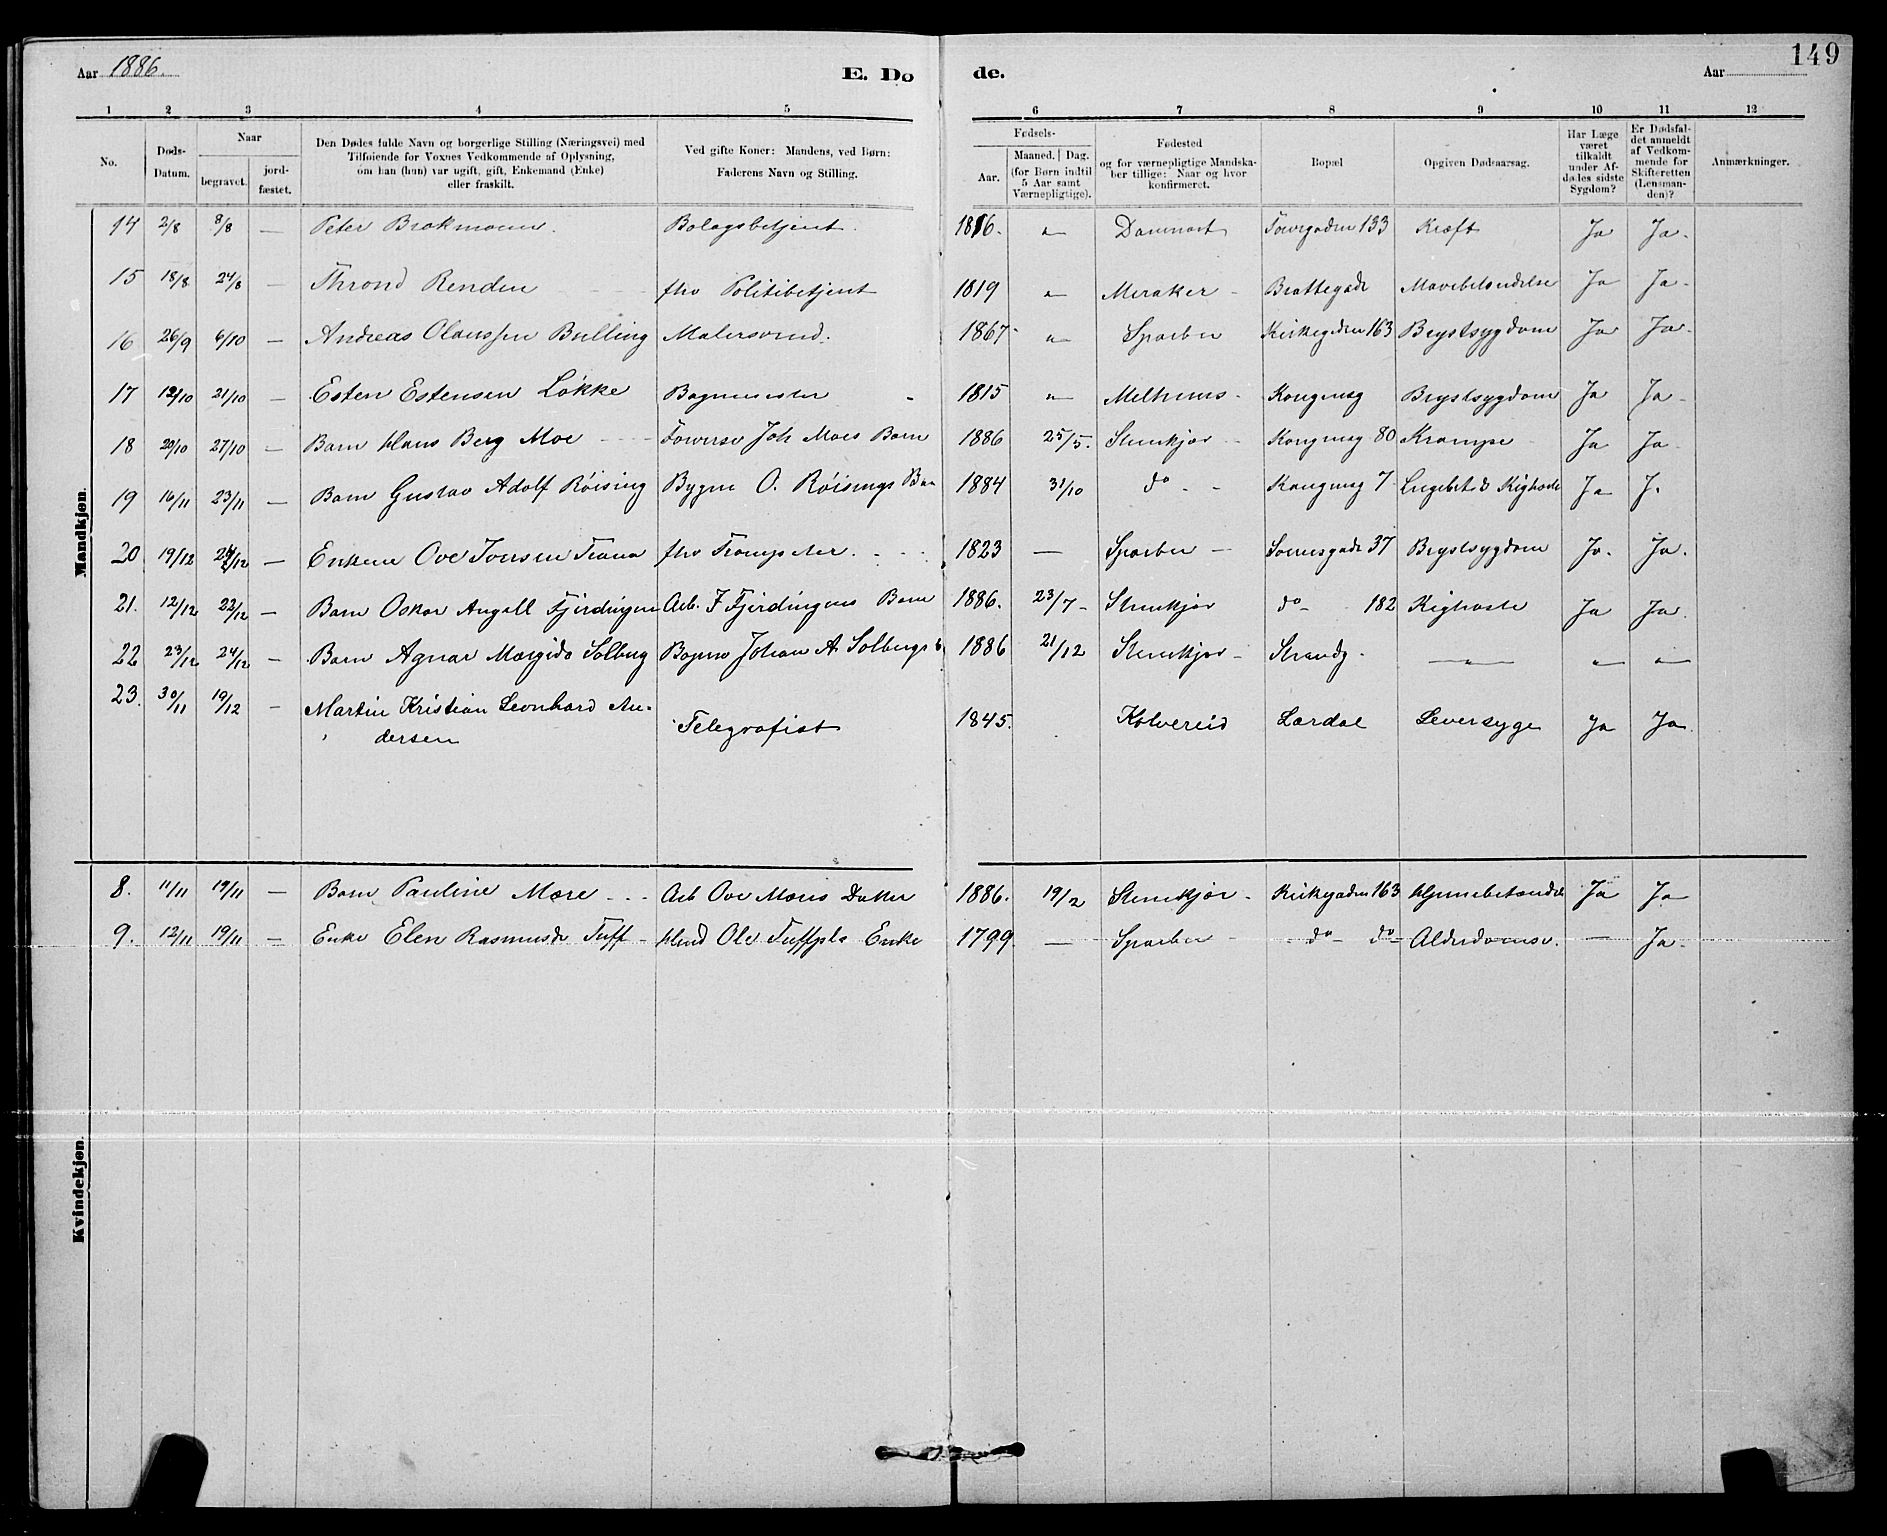 149
Aar 1886. E. Do de. Aar
1 2 3 4 5 6 7 8 9 10 11 12
No. Døds-Datum. Naar begravet. jordfæstet. Den Dødes fulde Navn og borgerlige Stilling (Næringsvei) med Tilføiende for Voxnes Vedkommende af Oplysning, om han (hun) var ugift, gift, Enkemand (Enke) eller fraskilt. Ved gifte Koner: Mandens, ved Børn: Faderens Navn og Stilling. Fødsels- Aar. Maaned. Dag. (for Børn indtil 5 Aar samt Værnepligtige). Fødested og for værnepligtige Mandskaber tillige: Naar og hvor konfirmeret. Bopæl Opgiven Dødsaarsag. Har Læge været tilkaldt under Afdødes sidste Sygdom? Er Dødsfaldet anmeldt af Vedkommende for Skifteretten (Lensmanden)? Anmærkninger.
Mandkjøn.
14 2/8 8/8 — Peter Brokmann. Bolagsbetjent. 1816. " Danmark 133 Kræft Ja Ja.
15 18/8 24/8 — Thrond Renden fhv Politibetjent 1819 " Meraker Brattegade Mavebetændelse Ja Ja.
16 26/9 6/10 — Andreas Olaussen Bulling Malersvend. 1867 " Sparbu Kirkegaden 163 Brystsygdom Ja Ja.
17 12/10 21/10 — Esten Estensen Løkke Bagermester 1815 " Melhus Kongensg Brystsygdom Ja Ja
18 20/10 27/10 — Barn Hans Berg Moe Joh Moes Barn 1886 25/5. Stenkjær Kongensg 80 Krampe Ja Ja.
19 16/11 23/11 — Barn Gustav Adolf Röising Bygm O. Röisings Ba 1884 31/10 do Kongensg 7 Lugebet & Kighoste Ja J.
20 19/12 24/12 — Enkem Ove Jonsen Trana fhv 1823 — Sparbu 37 Brystsygdom Ja. Ja.
21. 12/12 22/12 — Barn Oskar Angell Fjerdingen Arb. J Fjerdingens Barn 1886. 23/7 Stenkjær do 182 Kighoste Ja Ja.
22 23/12 24/12 — Barn Agnar Margido Solberg Bagersv Johan A. Solbergs b. 1886 21/12 Stenkjær Strandg. — " — " "
23. 30/11 19/12 — Martin Kristian Leonhard An-
dersen Telegrafist 1845. Kolvereid Lærdal Leversyge Ja Ja
Kvindekjøn.
8. 11/11 19/11 — Barn Pauline Mære Arb Ove Mæris Datter 1886. 19/2 Stenkjær Kirkegaden 163 Hjernebetændels Ja Ja
9. 12/11 19/11 — Enke Elen Rasmusdr Tuff Hmd Ole Tuffpls Enke 1799. — Sparbu do do Alderdomssv. — Ja